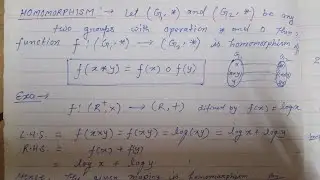 HOMOMORPHISM :→ Let (G₁, *) and (G₂, *) be any
two groups with operation * and O Then
function f : (G₁, *) → (G₂, *) is homomorphism if
f(x*y) = f(x) o f(y)
f : (R⁺,x) → (R, +) defined by f(x) = log x
L.H.S. = f(x×y) = f(xy) = log(xy) = log x + log y
R.H.S. = f(x) + f(y)
= log x + log y
given mapping is homomorphism